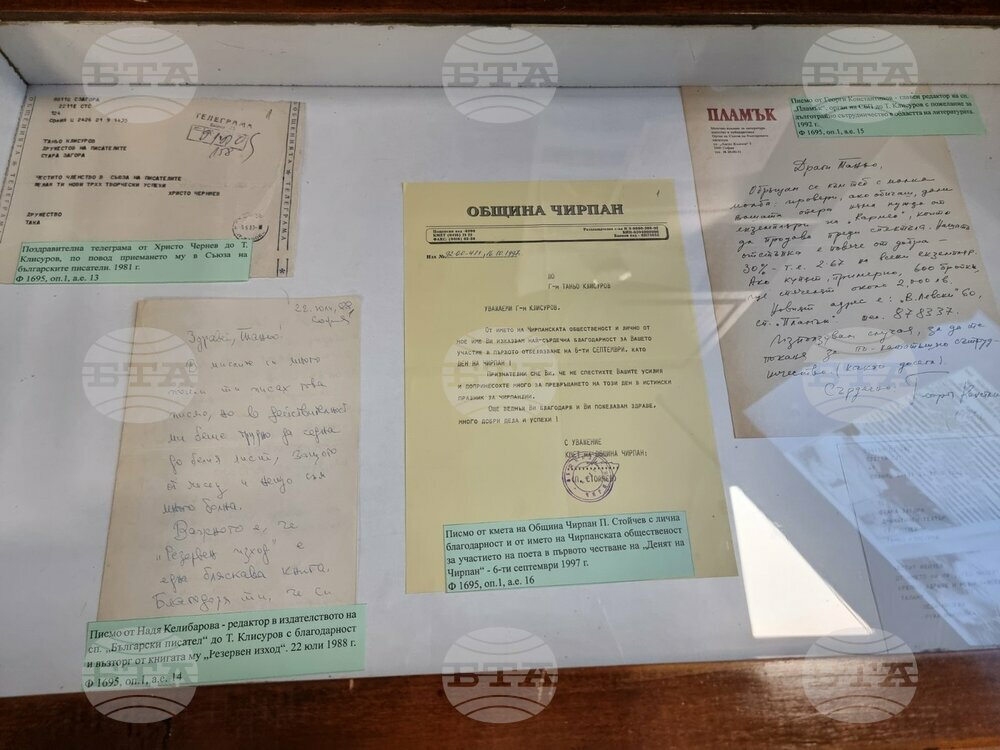 БТА
БТА
БТА
ТЕЛЕГРАМА
ТАНЬО КЛИСУРОВ
ДРУЖЕСТВО НА ПИСАТЕЛИТЕ
СТАРА ЗАГОРА
ЧЕСТИТО ЧЛЕНСТВО В СЪЮЗА НА ПИСАТЕЛИТЕ
ЖЕЛАЯ ТИ НОВИ ТВОРЧЕСКИ УСПЕХИ
ХРИСТО ЧЕРНЕВ
ДРУЖЕСТВО
Поздравителна телеграма от Христо Чернев до Т.
Клисуров, по повод приемането му в Съюза на
българските писатели. 1981 г.
Ф 1695, оп.1, а.е. 13
22. юли, 88
София
Здравей, Таньо!
мислих си много
пъти ти писах това
писмо, но в действителност
ми беше трудно да седна
до белия лист, защото
от месец и нещо съм
много болна.
Важното е, че
„Резервен изход" е
една бляскава книга.
Благодаря ти, че си
Писмо от Надя Келибарова - редактор в издателството на
сп. „Български писател“ до Т. Клисуров с благодарност
и възторг от книгата му „Резервен изход“. 22 юли 1988 г.
Ф 1695, оп.1, а.е. 14
1
ОБЩИНА ЧИРПАН
До
Г-н ТАНЬО КЛИСУРОВ
УВАЖАЕМИ Г-н КЛИСУРОВ,
ОТ ИМЕТО НА ЧИРПАНСКАТА ОБЩЕСТВЕНОСТ И ЛИЧНО ОТ
МОЕ ИМЕ ВИ ИЗКАЗВАМ НАЙ-СЪРДЕЧНА БЛАГОДАРНОСТ ЗА ВАШЕТО
УЧАСТИЕ В ПЪРВОТО ОТБЕЛЯЗВАНЕ НА 6-ТИ СЕПТЕМВРИ, КАТО
ДЕН НА ЧИРПАН!
ПРИЗНАТЕЛНИ СМЕ ВИ, ЧЕ НЕ СПЕСТИХТЕ ВАШИТЕ УСИЛИЯ
И ДОПРИНЕСОХТЕ МНОГО ЗА ПРЕВРЪЩАНЕТО НА ТОЗИ ДЕН В ИСТИНСКИ
ПРАЗНИК ЗА ЧИРПАНЛИИ.
ОЩЕ ВЕДНЪЖ ВИ БЛАГОДАРЯ И ВИ ПОЖЕЛАВАМ ЗДРАВЕ,
МНОГО ДОБРИ ДЕЛА И УСПЕХИ!
С УВАЖЕНИЕ
КМЕТ НА ОБЩИНА ЧИРПАН:
(П. СТОЙЧЕВ)
Писмо от кмета на Община Чирпан П. Стойчев с лична
благодарност и от името на Чирпанската общественост
за участието на поета в първото честване на „Денят на
Чирпан“ - 6-ти септември 1997 г.
Ф 1695, оп.1, а.е. 16
Писмо от Георги Константинов - главен редактор на сп.
„Пламък“, орган на СБП до Т. Клисуров с пожелание за
дълготрайно сътрудничество в областта на литературата.
1992 г.
Ф 1695, оп.1, а.е. 15
ПЛАМЪК
Драги Таньо,
Обръщам се към теб с малка
молба: провери, ако обичаш, дали
вашата опера няма нужда от
екземпляри на „Кармен", които
да продава преди спектакъл. Нашата
отстъпка е повече от добра -
30% - т.е. 2.67 на всеки екземпляр.
Ако купят, примерно, 600 бройки,
ще спечелят около 2,000 лв.
Новият адрес е: „В. Левски" 60,
сп. „Пламък". тел. 878337.
Използувам случая, за да те
поканя за по-нататъшно сътруд-
ничество (както досега).
Сърдечно:
БТА
БТА
БТА
БТА
БТА
БТА